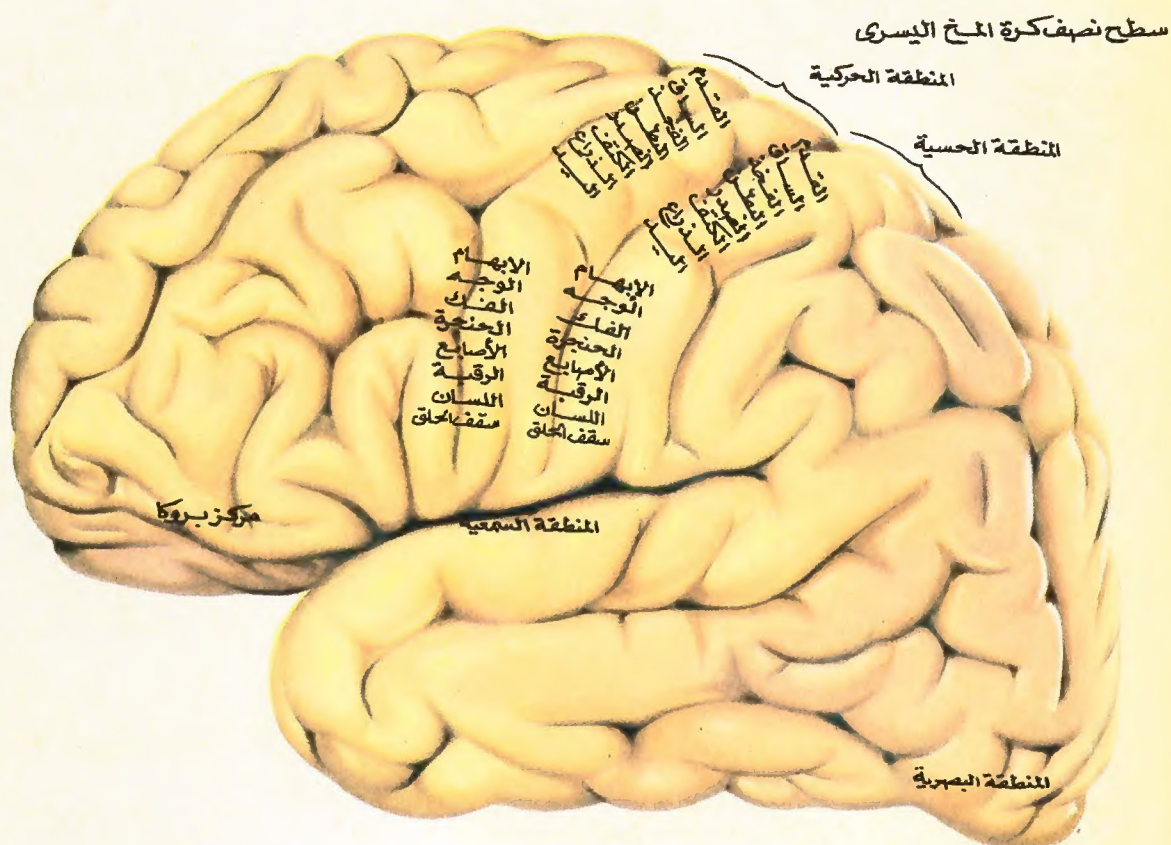 سطح نصف كرة المخ اليسرى
المنطقة الحركية
المنطقة الحسية
القدم
الساق
الفخذ
البطن
الصدر
الكتف
الذراع
اليد
القدم
الساق
الفخذ
البطن
الصدر
الكتف
الذراع
اليد
الإبهام
الوجه
الفك
الحنجرة
الأصابع
الرقبة
اللسان
سقف الحلق
الإبهام
الوجه
الفك
الحنجرة
الأصابع
الرقبة
اللسان
سقف الحلق
مركز بروكا
المنطقة السمعية
المنطقة البصرية